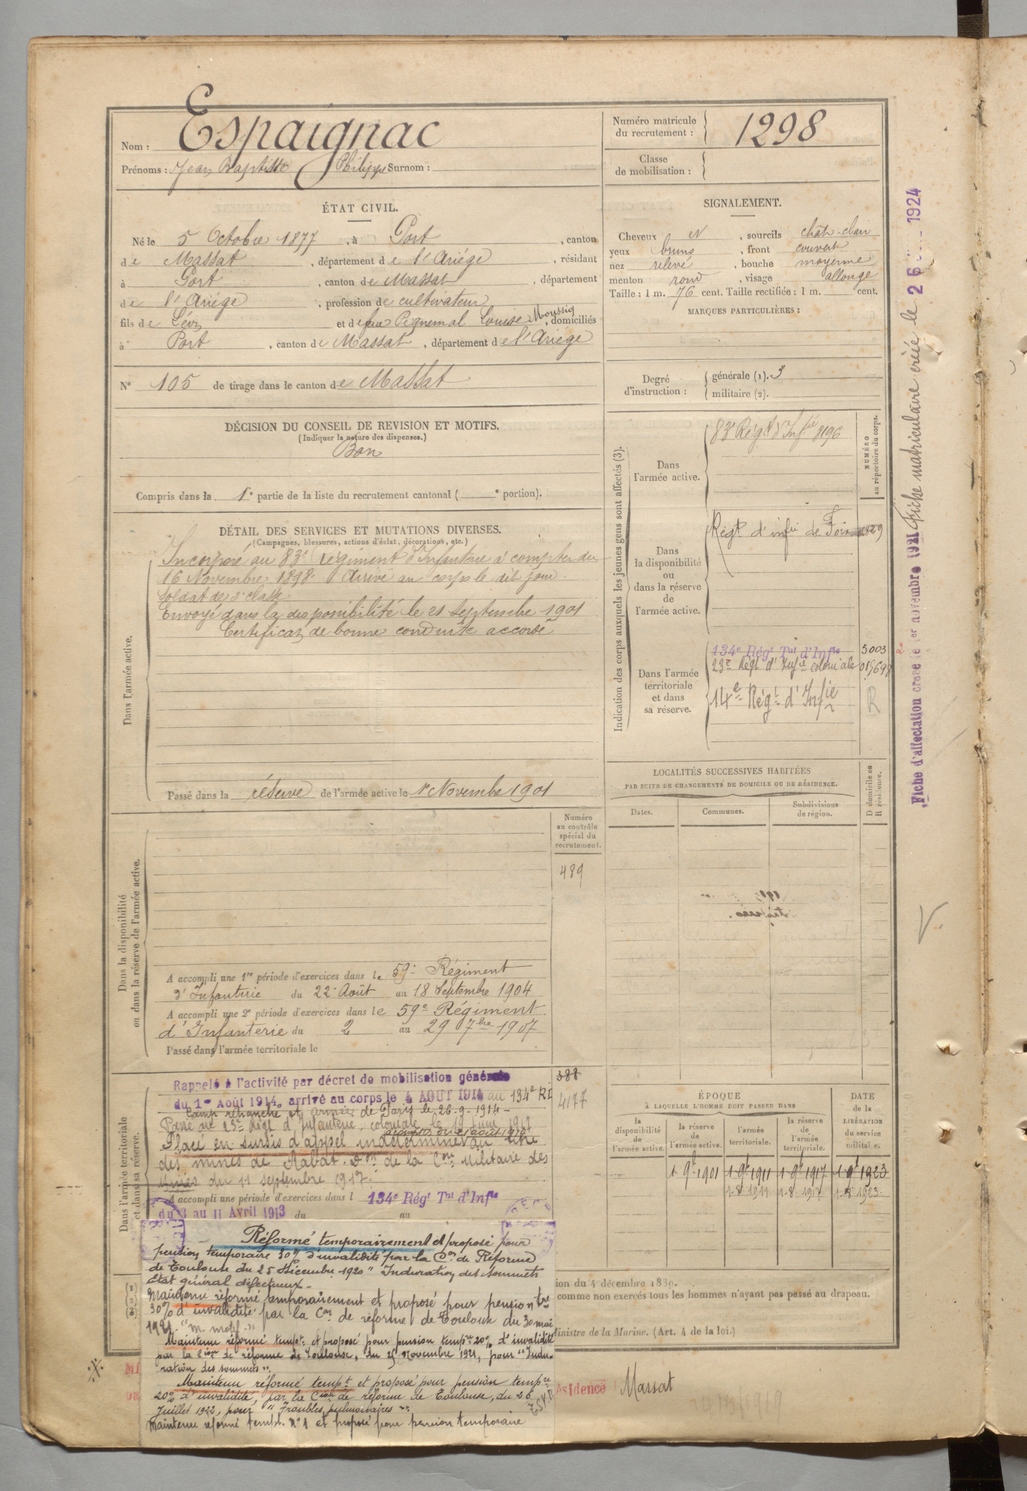 Nom : Espaignac
Prénoms : Jean Baptiste Philippe Surnom :
Numéro matricule
du recrutement : 1298
Classe
de mobilisation :
ÉTAT CIVIL.
Né le 5 Octobre 1877, à Port, canton
de Massat, département de l'Ariège, résidant
à Port, canton de Massat, département
de l'Ariège, profession de cultivateur
fils de Léon et de feu Pegnemal Louise Moussig, domiciliés
à Port, canton de Massat, département de l'Ariège
N° 105 de tirage dans le canton de Massat
SIGNALEMENT.
Cheveux N, sourcils chât-clair
yeux bruns, front couvert
nez relevé, bouche moyenne
menton rond, visage allongé
Taille : 1 m. 76 cent. Taille rectifiée : 1 m. cent.
MARQUES PARTICULIÈRES :
Degré
d'instruction :
générale (1). 3
militaire (2).
DÉCISION DU CONSEIL DE REVISION ET MOTIFS.
(Indiquer la nature des dispenses.)
Bon
Compris dans la 1e partie de la liste du recrutement cantonal ( e portion).
DÉTAIL DES SERVICES ET MUTATIONS DIVERSES.
(Campagnes, blessures, actions d'éclat, décorations, etc.)
Dans l'armée active.
Incorporé au 83e régiment d'Infanterie à compter du
16 Novembre 1898. Arrivé au corps le dit jour.
Soldat de 2e classe.
Envoyé dans la disponibilité le 21 Septembre 1901
Certificat de bonne conduite accordé
Passé dans la réserve de l'armée active le 1er Novembre 1901
Indication des corps auxquels les jeunes gens sont affectés (3).
NUMÉRO
au répertoire du corps.
Dans
l'armée active.
83e Régt d'Infie 8196
Dans
la disponibilité
ou
dans la réserve
de
l'armée active.
Régt d'infie de Foix
Dans l'armée
territoriale
et dans
sa réserve.
134e Régt Tal d'Infie 5003
23e Régt d'Infie coloniale
14e Régt d'Infie R
LOCALITÉS SUCCESSIVES HABITÉES
PAR SUITE DE CHANGEMENTS DE DOMICILE OU DE RÉSIDENCE.
Dates.
Communes.
Subdivisions
de région.
D domicile ou
R résidence.
Numéro
au contrôle
spécial du
recrutement.
489
Dans la disponibilité
ou dans la réserve de l'armée active.
A accompli une 1re période d'exercices dans le 59e Régiment
d'Infanterie du 22 Août au 18 Septembre 1904
A accompli une 2e période d'exercices dans le 59e Régiment
d'Infanterie du 2 au 29 7bre 1907
Passé dans l'armée territoriale le
Dans l'armée territoriale
et dans sa réserve.
388
4177
Rappelé à l'activité par décret de mobilisation générale
du 1er Août 1914, arrivé au corps le 4 AOUT 1914 au 134e RI
Camp retranché et armée de Paris le 26-9-1914
Passé au 23e Régt d'Infanterie coloniale le
Placé en sursis d'appel indéterminé au titre
des mines de Rabat. Don de la Con militaire des
mines du 11 septembre 1917.
A accompli une période d'exercices dans l 134e Régt Tal d'Infie
du 3 au 11 Avril 1913 du au
ÉPOQUE
À LAQUELLE L'HOMME DOIT PASSER DANS
la
disponibilité
de
l'armée active.
la réserve
de
l'armée active.
l'armée
territoriale.
la réserve
de
l'armée
territoriale.
DATE
de la
LIBÉRATION
du service
militaire.
1 9bre 1901 1 9bre 1911 1 9bre 1917 1 9bre 1923
Réformé temporairement et proposé pour
pension temporaire 30% d'invalidité par la Con de Réforme
de Toulouse du 25 Décembre 1920 "Induration des sommets
État général défectueux.
Maintenu réformé temporairement et proposé pour pension tre
30% d'invalidité par la Con de réforme de Toulouse du 30 mai
1921. "m. motif."
Maintenu réformé tempt et proposé pour pension tempre 20% d'invalidité
par la Con de réforme de Toulouse, du 25 novembre 1921, pour "Indu-
ration des sommets".
Maintenu réformé tempt et proposé pour pension tempre
20% d'invalidité, par la Con de réforme de Toulouse, du 26
Juillet 1922, pour "Troubles pulmonaires".
Maintenu réformé tempt. N°1 et proposé pour pension temporaire
comme non exercés tous les hommes n'ayant pas passé au drapeau.
Ministre de la Marine. (Art. 4 de la loi.)
ésidence Massat
Fiche d'affectation créée le 1er novembre 1921 Fiche matriculaire créée le 26 1924